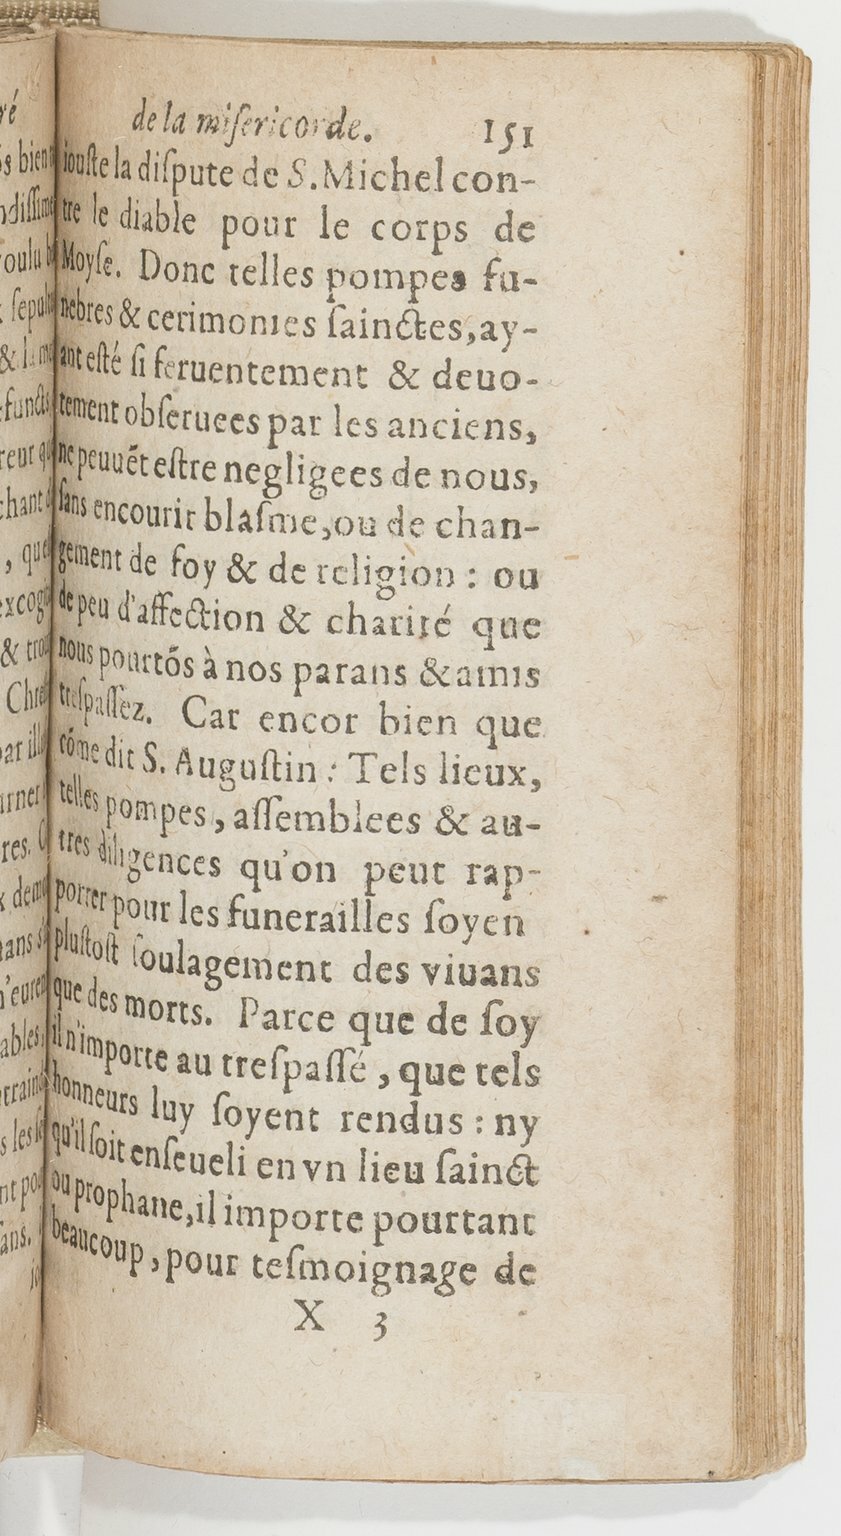 de la misericorde. 151
iouste la dispute de S. Michel con-
tre le diable pour le corps de
Moyse. Donc telles pompes fu-
nebres & cerimonies sainctes, ay-
ant esté si feruentement & deuo-
tement obseruees par les anciens,
ne peuuẽt estre negligees de nous,
sans encourir blasme, ou de chan-
gement de foy & de religion : ou
de peu d'affection & charité que
nous pourtõs à nos parans & amis
trespassez. Car encor bien que
cõme dit S. Augustin : Tels lieux,
telles pompes, assemblees & au-
tres diligences qu'on peut rap-
porter pour les funerailles soyen
plustost soulagement des viuans
que des morts. Parce que de soy
il n'importe au trespassé, que tels
honneurs luy soyent rendus : ny
qu'il soit enseueli en vn lieu sainct
ou prophane, il importe pourtant
beaucoup, pour tesmoignage de
X 3